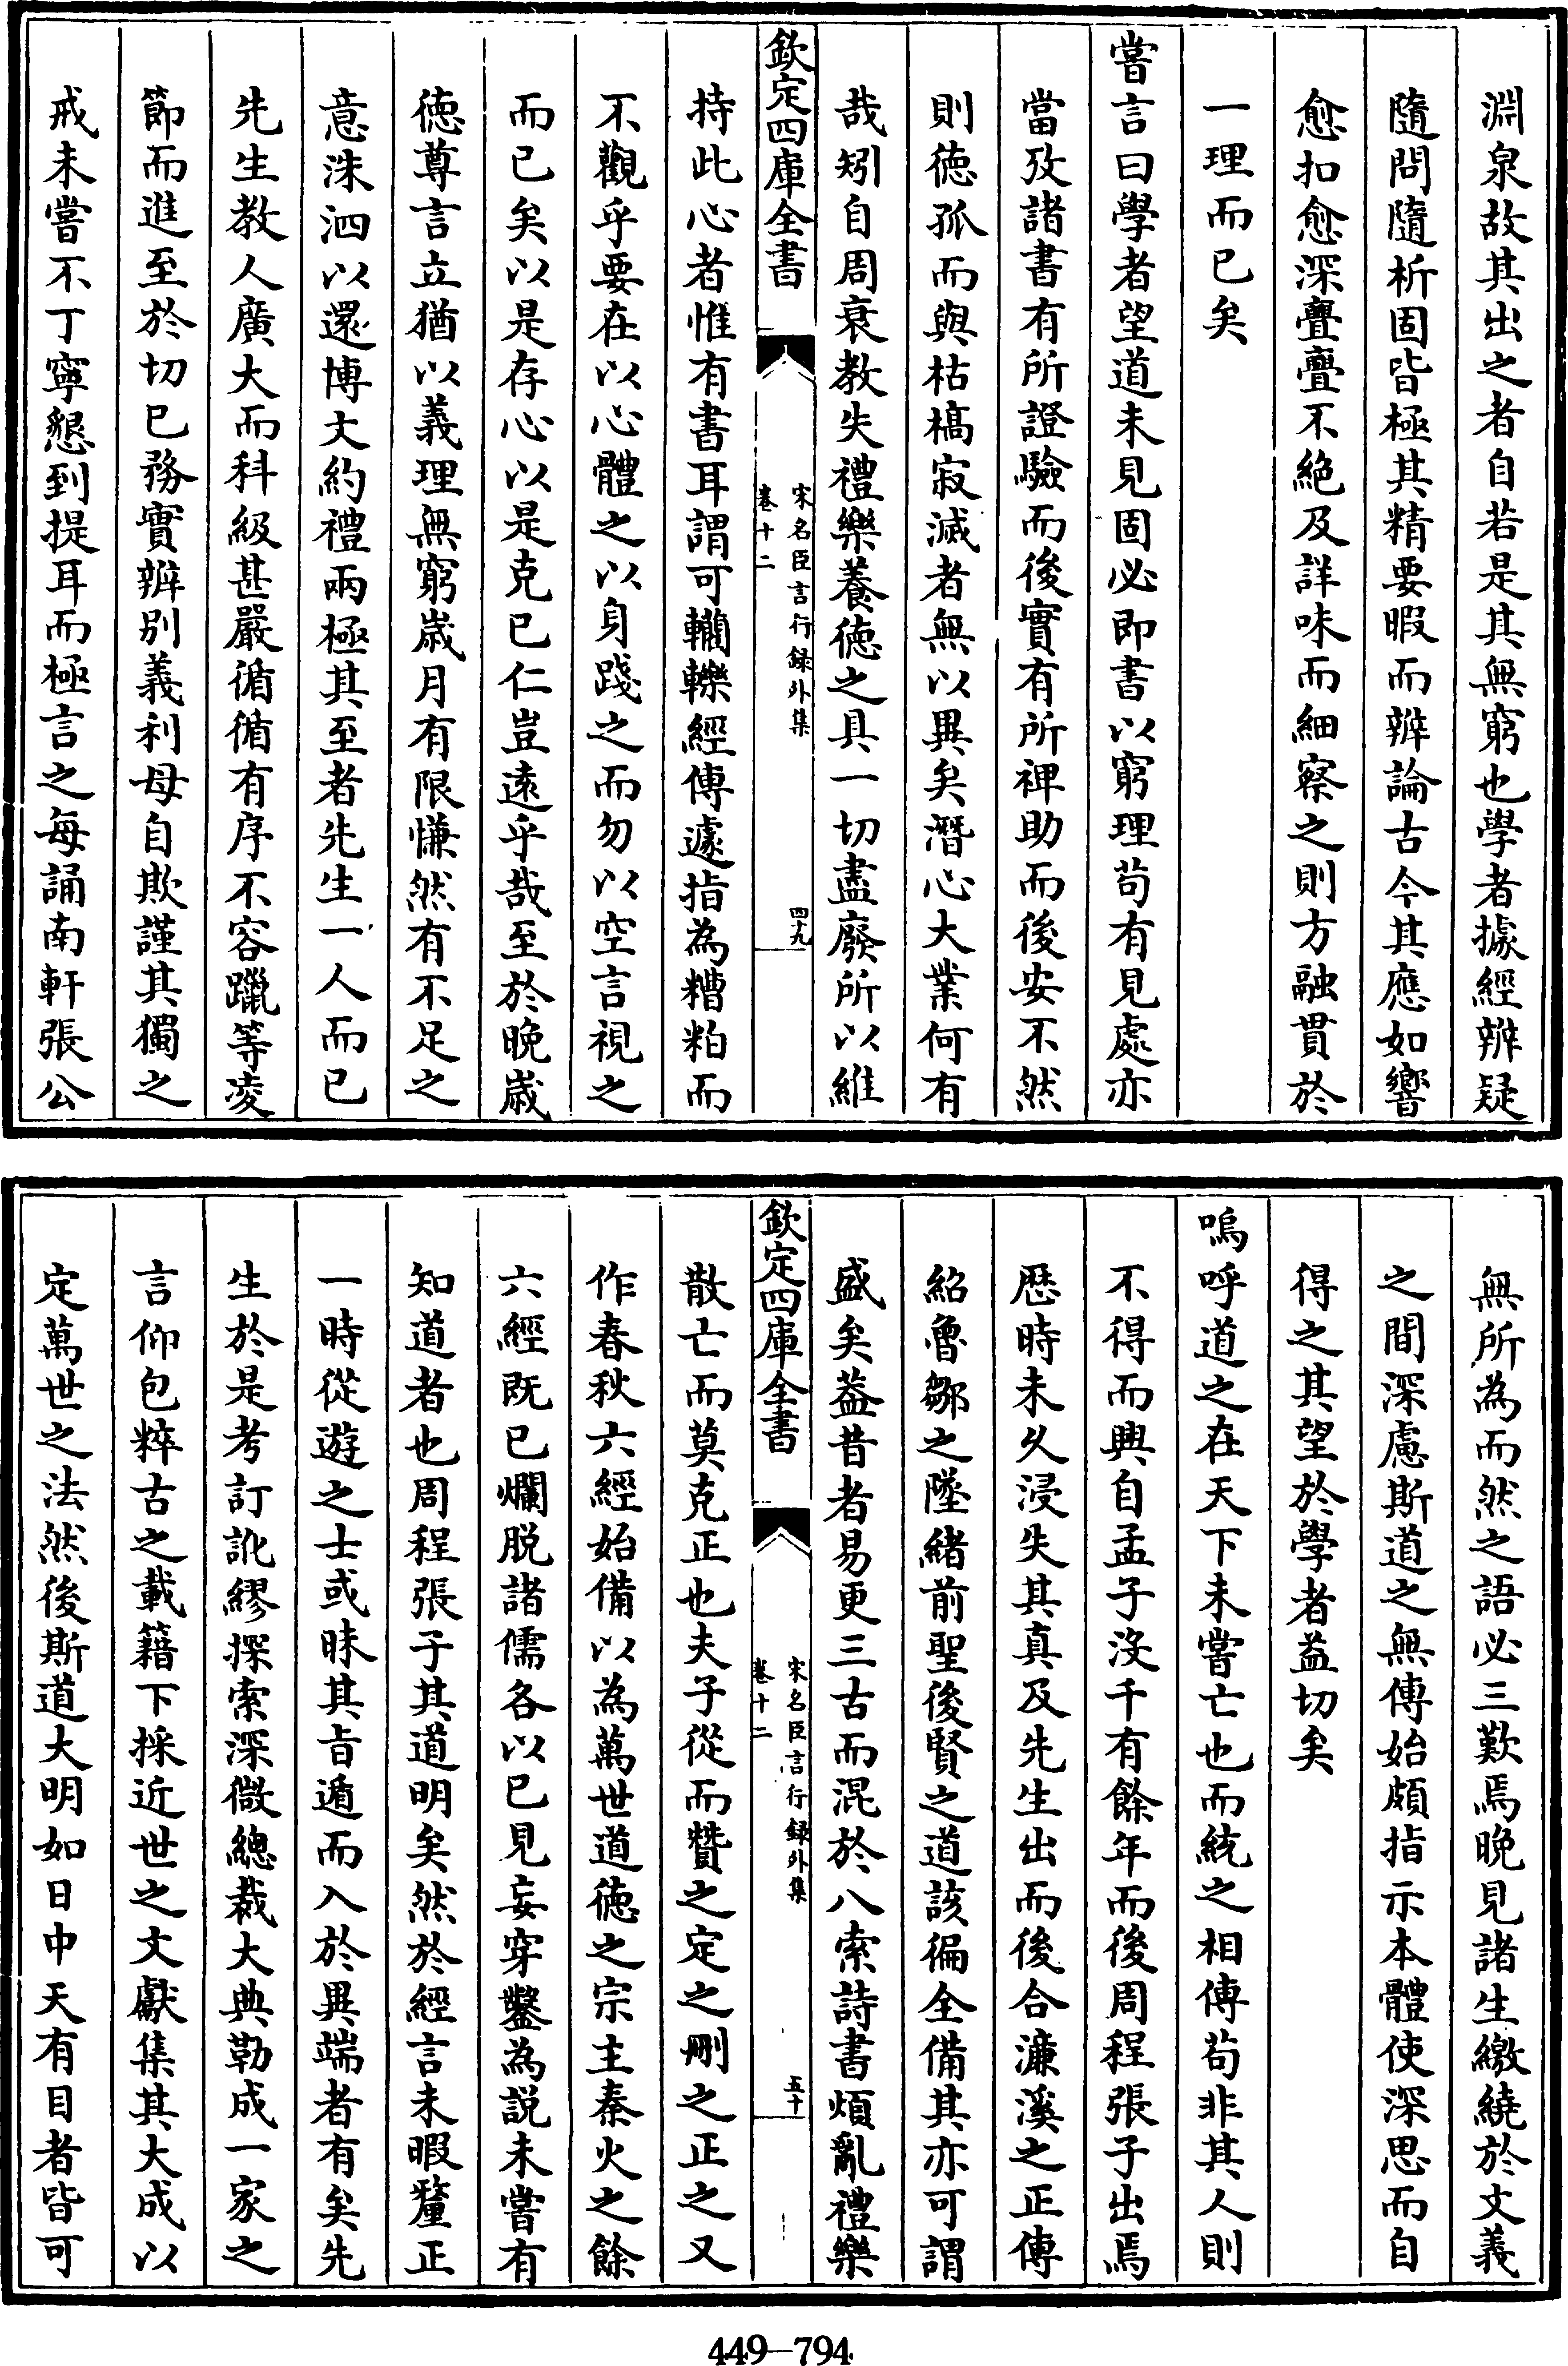 淵泉故其出之者自若是其無窮也學者據經辨疑
隨問隨析固皆極其精要暇而辨論古今其應如響
愈扣愈深亹亹不絕及詳味而細察之則方融貫於
一理而已矣
嘗言曰學者望道未見固必即書以窮理苟有見處亦
當攷諸書有所證驗而後實有所裨助而後安不然
則德孤而與枯槁寂滅者無以異矣潛心大業何有
哉矧自周衰教失禮樂養徳之具一切盡廢所以維
欽定四庫全書
宋名臣言行録外集
卷十二
四十九
持此心者惟有書耳謂可轥轢經傳遽指為糟粕而
不觀乎要在以心體之以身踐之而勿以空言視之
而已矣以是存心以是克已仁豈遠乎哉至於晚歳
德尊言立猶以義理無窮歳月有限慊然有不足之
意洙泗以還博文約禮兩極其至者先生一人而已
先生教人廣大而科級甚嚴循循有序不容躐等凌
節而進至於切已務實辨别義利毋自欺謹其獨之
戒未嘗不丁寧懇到提耳而極言之每誦南軒張公
無所為而然之語必三歎焉晚見諸生繳繞於文義
之間深慮斯道之無傳始頗指示本體使深思而自
得之其望於學者益切矣
嗚呼道之在天下未嘗亡也而統之相傳苟非其人則
不得而興自孟子沒千有餘年而後周程張子出焉
歴時未乆浸失其真及先生出而後合濂溪之正傳
紹魯鄒之墜緒前聖後賢之道該徧全備其亦可謂
盛矣葢昔者易更三古而混於八索詩書煩亂禮樂
欽定四庫全書
宋名臣言行録外集
卷十二
五十
散亡而莫克正也夫子從而贊之定之刪之正之又
作春秋六經始備以為萬世道徳之宗主秦火之餘
六經既已爛脱諸儒各以已見妄穿鑿為説未嘗有
知道者也周程張子其道明矣然於經言未暇釐正
一時從遊之士或昧其旨遁而入於異端者有矣先
生於是考訂訛繆探索深微總裁大典勒成一家之
言仰包粹古之載籍下採近世之文獻集其大成以
定萬世之法然後斯道大明如日中天有目者皆可
449-794